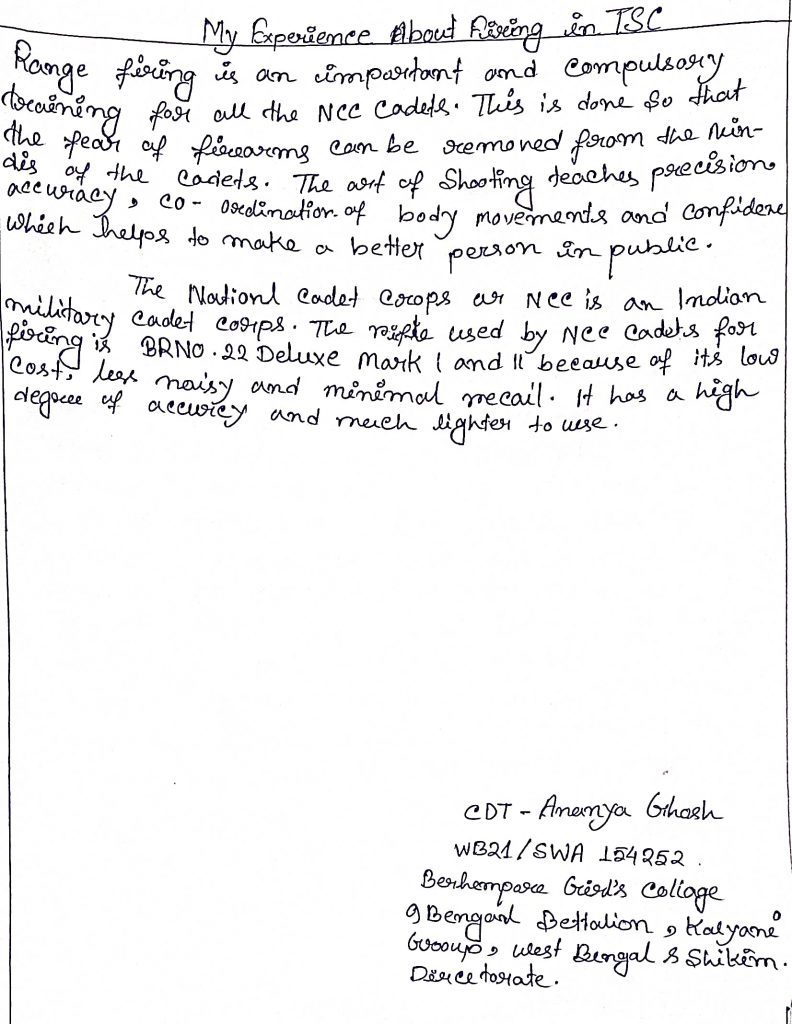 My Experience About Firing in TSC
Range firing is an important and compulsory
training for all the NCC Cadets. This is done so that
the fear of firearms can be removed from the min-
dis of the cadets. The art of Shooting teaches precision
accuracy, co-ordination of body movements and confidene
which helps to make a better person in public.
The Nationl Cadet Corops or NCC is an Indian
military Cadet corps. The rifle used by NCC Cadets for
firing is BRNO .22 Deluxe Mark I and II because of its low
cost, less noisy and minimal recoil. It has a high
degree of accuricy and much lighter to use.
CDT - Ananya Ghosh
WB21/SWA 154252.
Berhempore Girl's Collage
9 Bengard Bettalion, Kalyani
Group, West Bengal & Shikim.
Dircetorate.